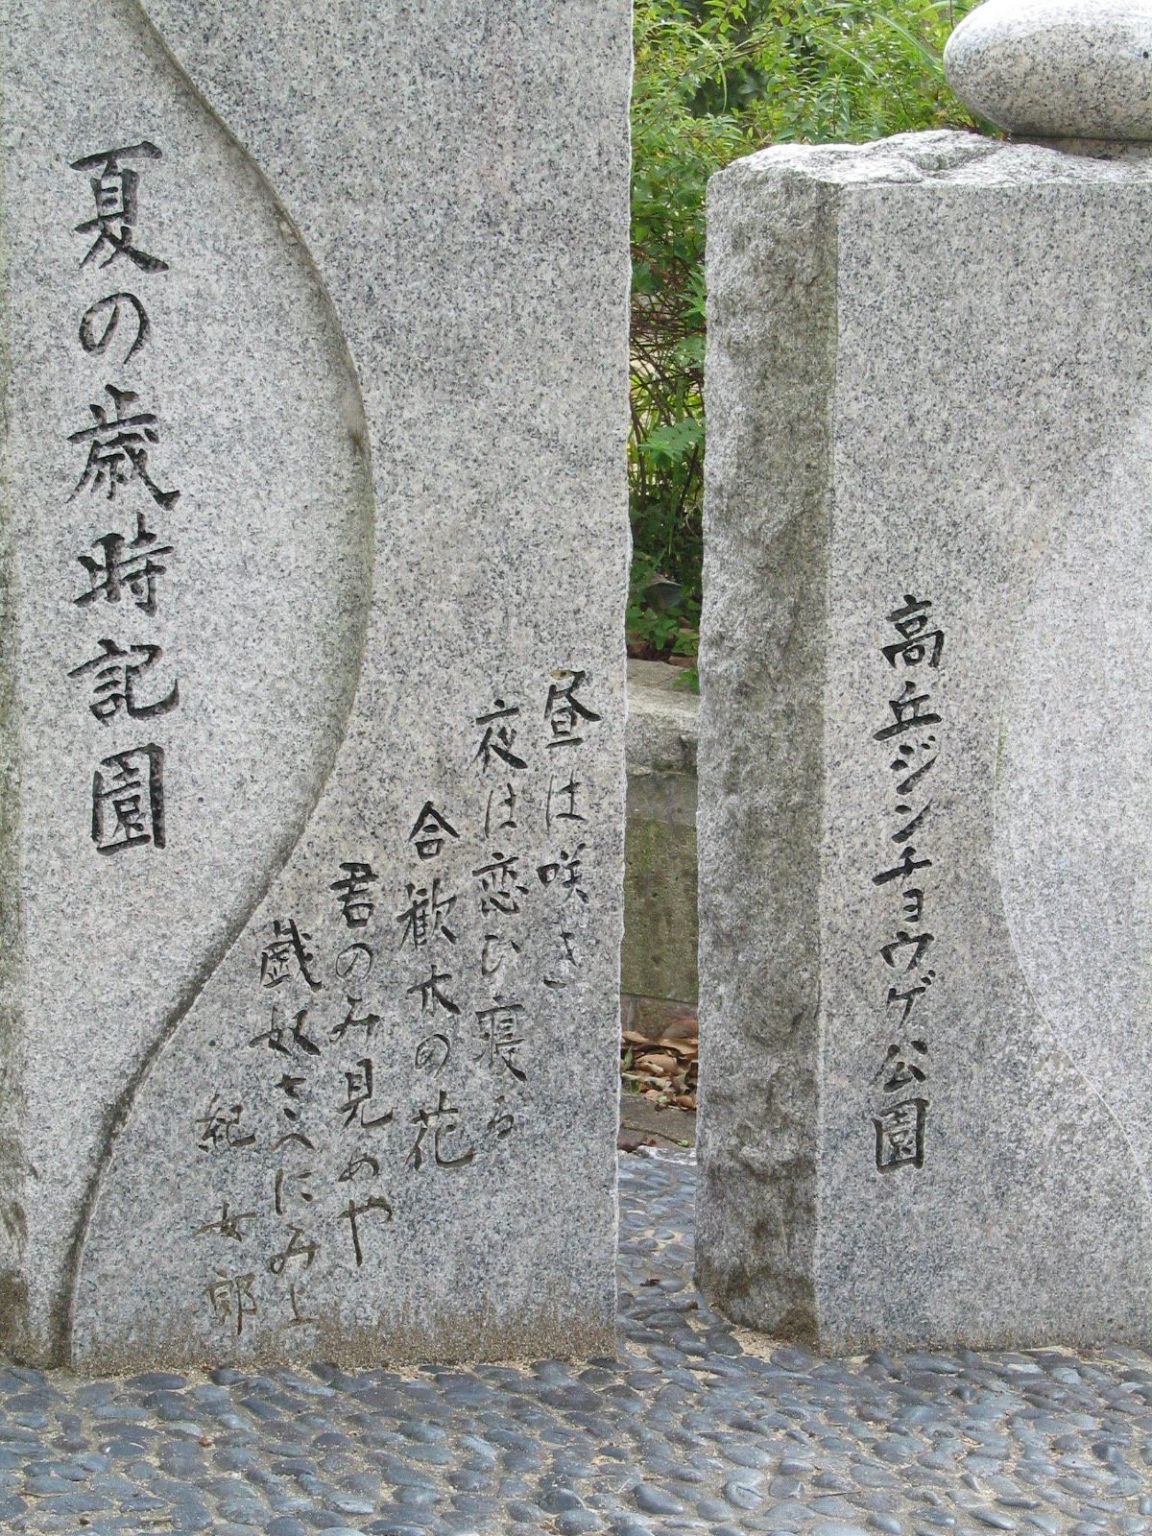 高丘ジンチョウゲ公園
昼は咲き
夜は恋ひ寝る
合歓木の花
君のみ見めや
戯奴さへにみよ
紀女郎
夏の歳時記園